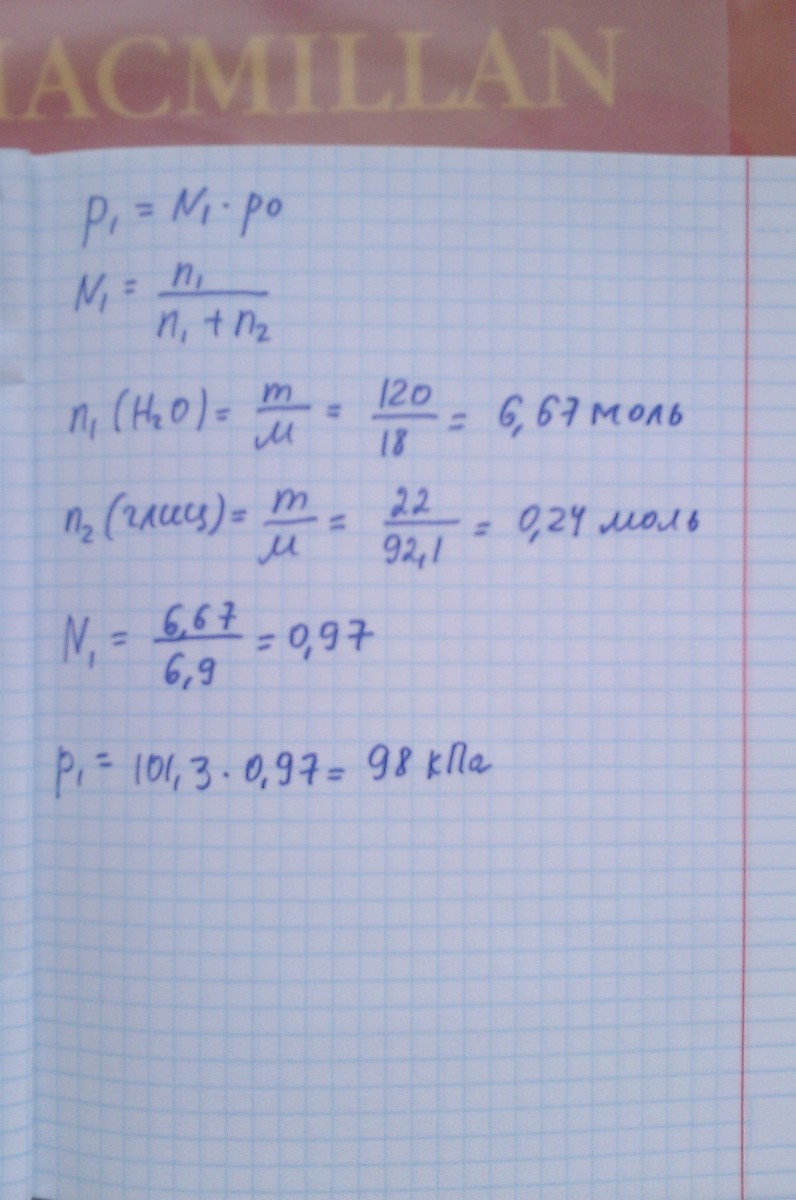 MACMILLAN
p₁ = N₁ · p0
N₁ = n₁ / (n₁ + n₂)
n₁ (H₂O) = m / M = 120 / 18 = 6,67 моль
n₂ (глиц) = m / M = 22 / 92,1 = 0,24 моль
N₁ = 6,67 / 6,9 = 0,97
p₁ = 101,3 · 0,97 = 98 кПа